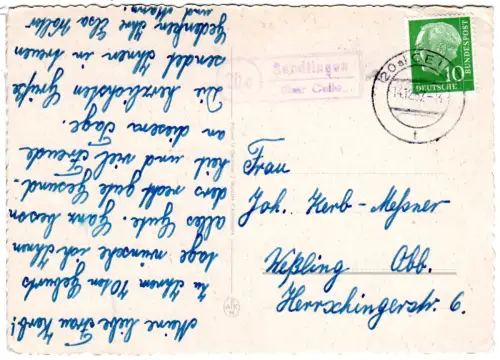 Meine liebe Frau Kerb!
Zu Ihrem 70ten Geburts
tage wünsche ich Ihnen
alles Gute. Ganz beson
ders recht gute Gesund-
heit und viel Freude
an diesem Tage.
Die herzlichsten Grüße
sendet Ihnen in treuem
Gedenken Ihre Elsa
und Mann.
Sandlingen
über Celle
(20a) CELLE
14.12.57
10
DEUTSCHE
BUNDESPOST
Frau
Joh. Kerb-Meßner
Weßling Obb.
Herrschingerstr. 6.